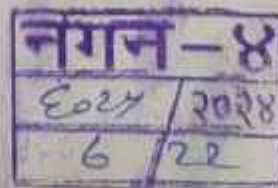 नगन-४
६०२५/२०२४
6/22